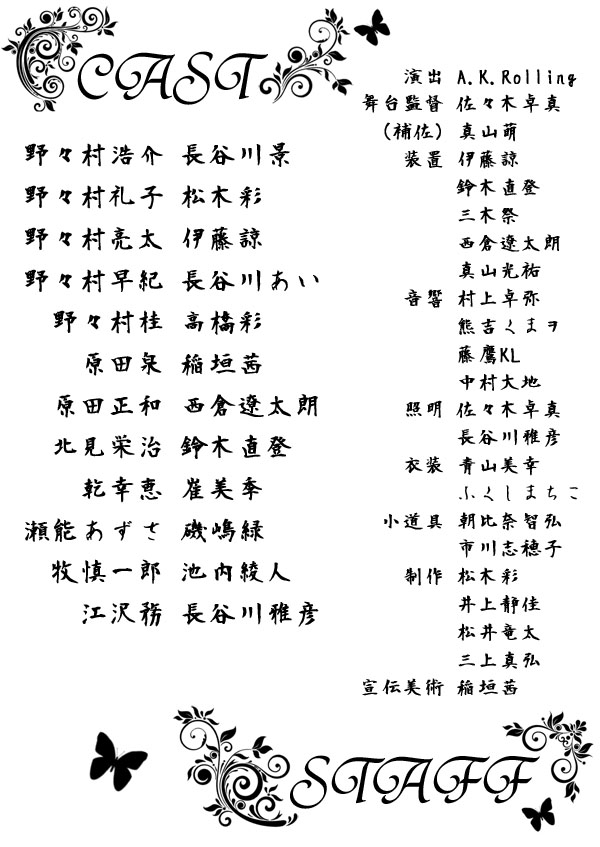 CAST
野々村浩介 長谷川景
野々村礼子 松木彩
野々村亮太 伊藤諒
野々村早紀 長谷川あい
野々村桂 高橋彩
原田泉 稲垣茜
原田正和 西倉遼太朗
北見栄治 鈴木直登
乾幸恵 崔美季
瀬能あずさ 磯嶋緑
牧慎一郎 池内綾人
江沢務 長谷川雅彦
演出 A.K.Rolling
舞台監督 佐々木卓真
(補佐) 真山萌
装置 伊藤諒
鈴木直登
三木祭
西倉遼太朗
真山光祐
音響 村上卓弥
熊吉くまヲ
藤鷹KL
中村大地
照明 佐々木卓真
長谷川雅彦
衣装 青山美幸
ふくしまちこ
小道具 朝比奈智弘
市川志穂子
制作 松木彩
井上静佳
松井竜太
三上真弘
宣伝美術 稲垣茜
STAFF